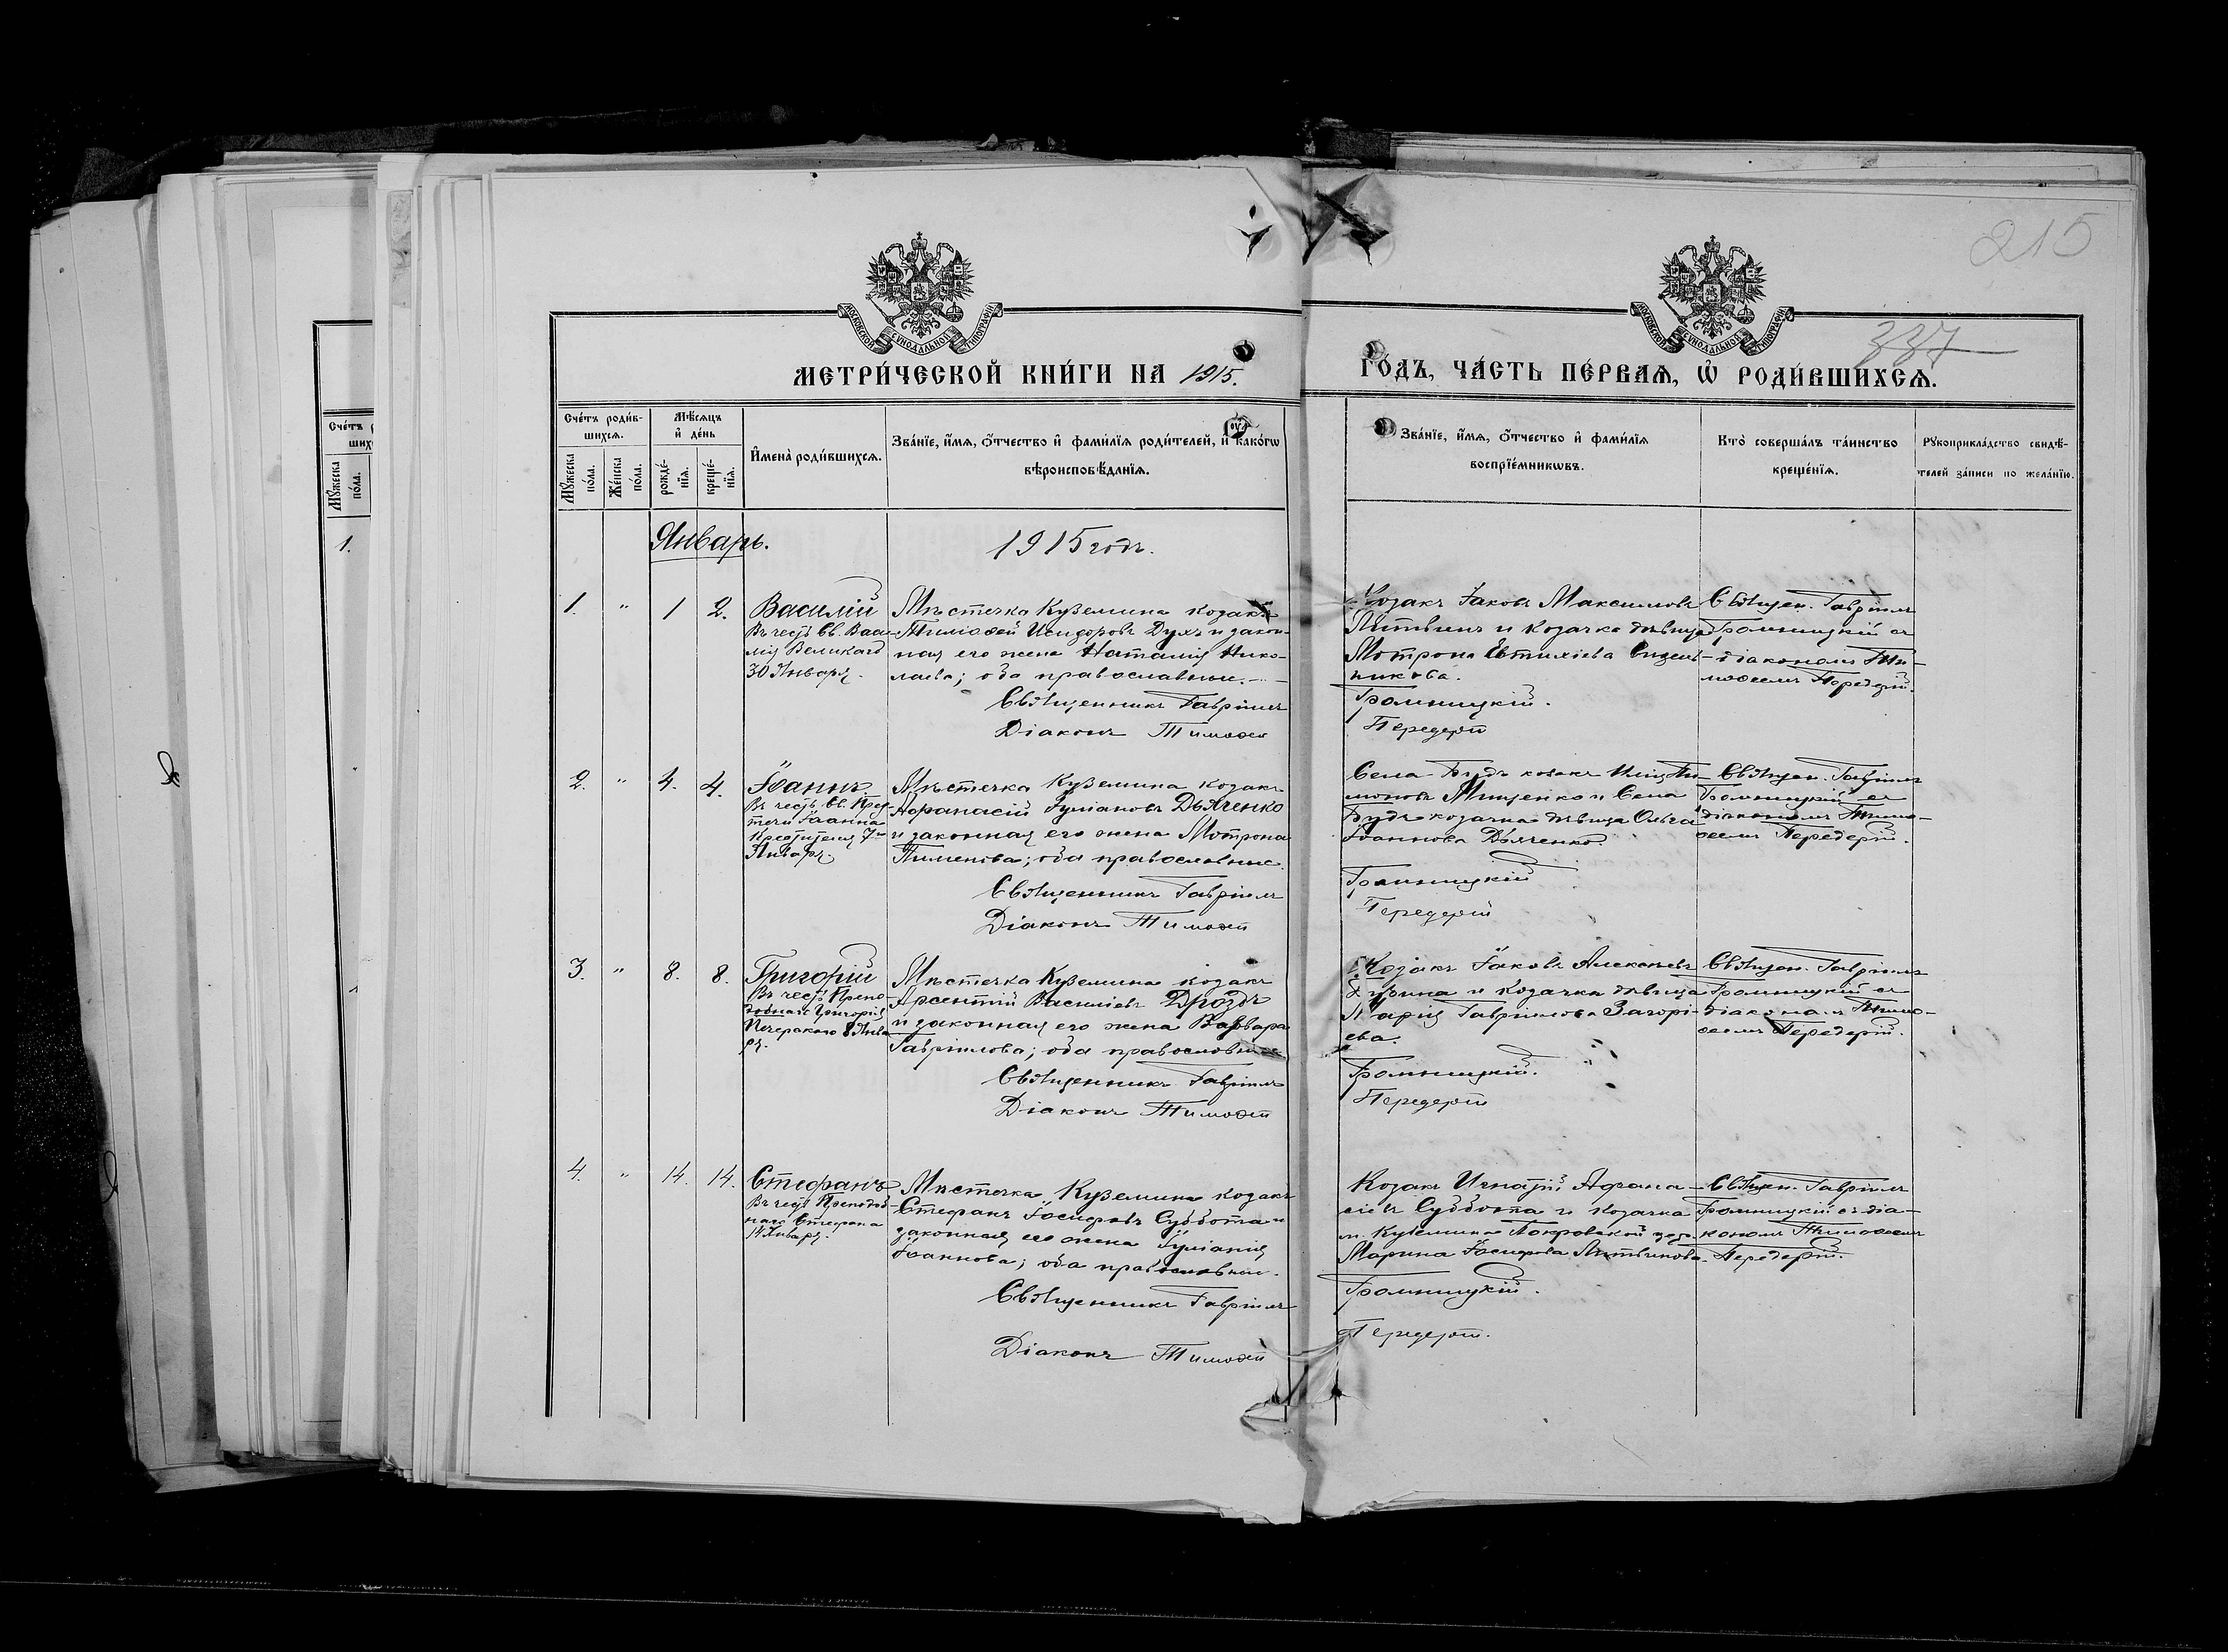 215
337
МОСКОВСКОЙ СѴНОДАЛЬНОЙ ТИПОГРАФІИ
МОСКОВСКОЙ СѴНОДАЛЬНОЙ ТИПОГРАФІИ
МЕТРИ́ЧЕСКОЙ КНИ́ГИ НА 1915.
ГО́ДЪ, ЧА́СТЬ ПЕ́РВАѦ, Ѡ҆ РОДИ́ВШИХСѦ.
Сче́тъ роди́в-
шихсѧ.
Мꙋ́жеска по́ла.
Же́нска по́ла.
Мѣ́сѧцъ
и҆ де́нь
рожде́-нїѧ.
креще́-нїѧ.
И҆мена̀ роди́вшихсѧ.
Зва́нїе, и҆́мѧ, ѻ҆́тчество и҆ фами́лїѧ роди́телей, и҆ како́гѡ
вѣроисповѣ́данїѧ.
Зва́нїе, и҆́мѧ, ѻ҆́тчество и҆ фами́лїѧ
воспрїе́мникѡвъ.
Кто̀ соверша́лъ та́инство
креще́нїѧ.
Рꙋкоприкла́дство свидѣ́-
телей за́писи по жела́нїю.
Сче́тъ
Мꙋ́жеска по́ла.
1.
Январь.
1915 годъ.
1. " 1 2.
Василій
Въ честь Св. Васи-
лія Великаго
30 Января.
Мѣстечка Куземина козакъ
Тимофей Исидоровъ Духъ и закон-
ная его жена Наталія Нико-
лаева; оба православные.
Священникъ Гавріилъ
Діаконъ Тимофей
Козакъ Іаковъ Максимовъ
Литвинъ и козачка дѣвица
Мотрона Евтихіева
никова.
Громницкій.
Передерій
Священ. Гавріилъ
Громницкій съ
діакономъ Ти-
мофеемъ Передерій.
2. " 4. 4.
Іоаннъ.
Въ честь Св. Пред-
течи Іоанна
Крестителя 7го
Января
Мѣстечка Куземина козакъ
Афанасій Іуліановъ Дьяченко
и законная его жена Мотрона
Пименова; оба православные.
Священникъ Гавріилъ
Діаконъ Тимофей
Села Будъ козакъ Илія Ти-
моновъ Мищенко и Села
Будъ козачка дѣвица Ольга
Іоаннова Дьяченко.
Громницкій
Передерій
Священ. Гавріилъ
Громницкій съ
діакономъ Тимо-
феемъ Передерій.
3. " 8. 8.
Григорій
Въ честь Препо-
добнаго Григорія
Печерскаго 8 Янва-
ря.
Мѣстечка Куземина козакъ
Арсентій Василіевъ Дроздъ
и законная его жена Варвара
Гавріилова; оба православные
Священникъ Гавріилъ
Діаконъ Тимофей
Козакъ Іаковъ Алексѣевъ
и козачка дѣвица
Марія Гавріилова Загорі-
ева.
Громницкій.
Передерій
Священ. Гавріилъ
Громницкій съ
діакономъ Тимо-
феемъ Передерій.
4. " 14. 14.
Стефанъ
Въ честь Преподоб-
наго Стефана
14 Января.
Мѣстечка Куземина козакъ
Стефанъ Іосифовъ Суббота и
законная его жена Іуліанія
Іоаннова; оба православные.
Священникъ Гавріилъ
Діаконъ Тимофей
Козакъ Игнатій Афана-
сіевъ Суббота и козачка
м. Куземина Покровской цер.
Марина Іосифова Литвинова.
Громницкій.
Передерій.
Священ. Гавріилъ
Громницкій съ діа-
кономъ Тимофеемъ
Передерій.